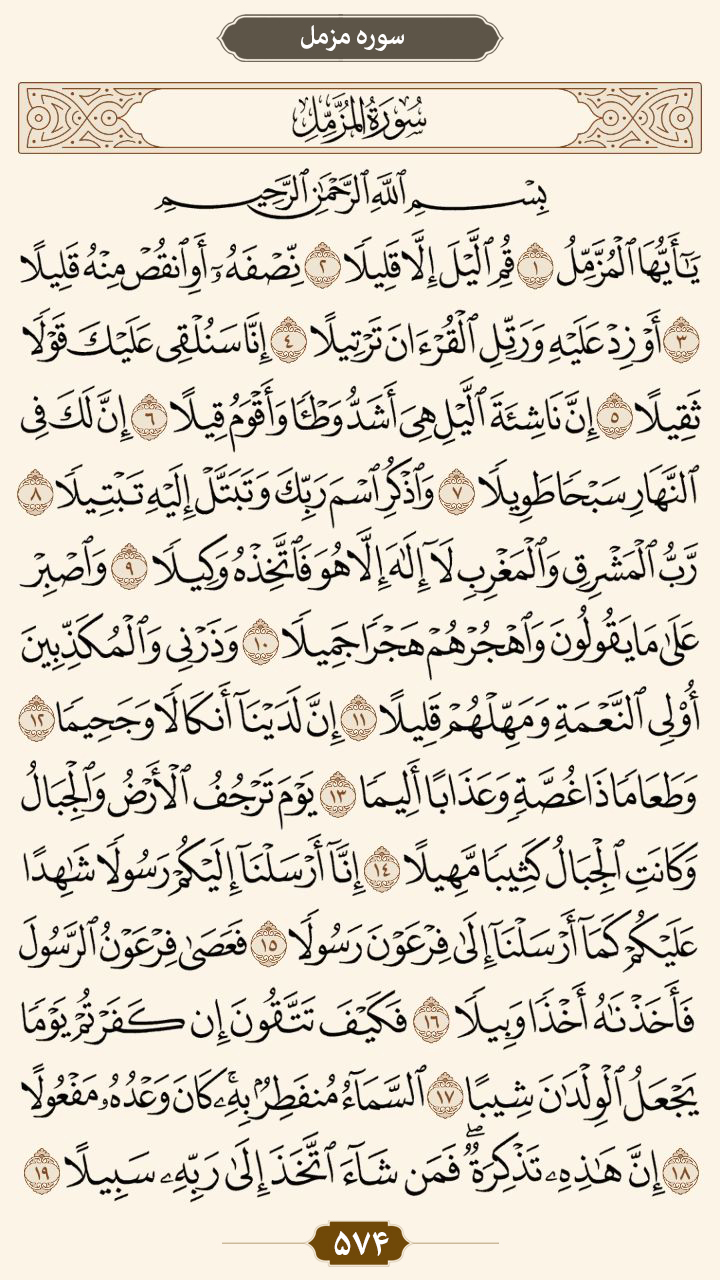 سوره مزمل
سُورَةُ الْمُزَّمِّلِ
بِسْمِ ٱللَّهِ ٱلرَّحْمَٰنِ ٱلرَّحِيمِ
يَٰٓأَيُّهَا ٱلْمُزَّمِّلُ ١ قُمِ ٱلَّيْلَ إِلَّا قَلِيلًا ٢ نِّصْفَهُۥٓ أَوِ ٱنقُصْ مِنْهُ قَلِيلًا
٣ أَوْ زِدْ عَلَيْهِ وَرَتِّلِ ٱلْقُرْءَانَ تَرْتِيلًا ٤ إِنَّا سَنُلْقِى عَلَيْكَ قَوْلًا
ثَقِيلًا ٥ إِنَّ نَاشِئَةَ ٱلَّيْلِ هِىَ أَشَدُّ وَطْـًٔا وَأَقْوَمُ قِيلًا ٦ إِنَّ لَكَ فِى
ٱلنَّهَارِ سَبْحًا طَوِيلًا ٧ وَٱذْكُرِ ٱسْمَ رَبِّكَ وَتَبَتَّلْ إِلَيْهِ تَبْتِيلًا ٨
رَّبُّ ٱلْمَشْرِقِ وَٱلْمَغْرِبِ لَآ إِلَٰهَ إِلَّا هُوَ فَٱتَّخِذْهُ وَكِيلًا ٩ وَٱصْبِرْ
عَلَىٰ مَا يَقُولُونَ وَٱهْجُرْهُمْ هَجْرًا جَمِيلًا ١٠ وَذَرْنِى وَٱلْمُكَذِّبِينَ
أُو۟لِى ٱلنَّعْمَةِ وَمَهِّلْهُمْ قَلِيلًا ١١ إِنَّ لَدَيْنَآ أَنكَالًا وَجَحِيمًا ١٢
وَطَعَامًا ذَا غُصَّةٍ وَعَذَابًا أَلِيمًا ١٣ يَوْمَ تَرْجُفُ ٱلْأَرْضُ وَٱلْجِبَالُ
وَكَانَتِ ٱلْجِبَالُ كَثِيبًا مَّهِيلًا ١٤ إِنَّآ أَرْسَلْنَآ إِلَيْكُمْ رَسُولًا شَٰهِدًا
عَلَيْكُمْ كَمَآ أَرْسَلْنَآ إِلَىٰ فِرْعَوْنَ رَسُولًا ١٥ فَعَصَىٰ فِرْعَوْنُ ٱلرَّسُولَ
فَأَخَذْنَٰهُ أَخْذًا وَبِيلًا ١٦ فَكَيْفَ تَتَّقُونَ إِن كَفَرْتُمْ يَوْمًا
يَجْعَلُ ٱلْوِلْدَٰنَ شِيبًا ١٧ ٱلسَّمَآءُ مُنفَطِرٌۢ بِهِۦ ۚ كَانَ وَعْدُهُۥ مَفْعُولًا
١٨ إِنَّ هَٰذِهِۦ تَذْكِرَةٌ ۖ فَمَن شَآءَ ٱتَّخَذَ إِلَىٰ رَبِّهِۦ سَبِيلًا ١٩
۵۷۴